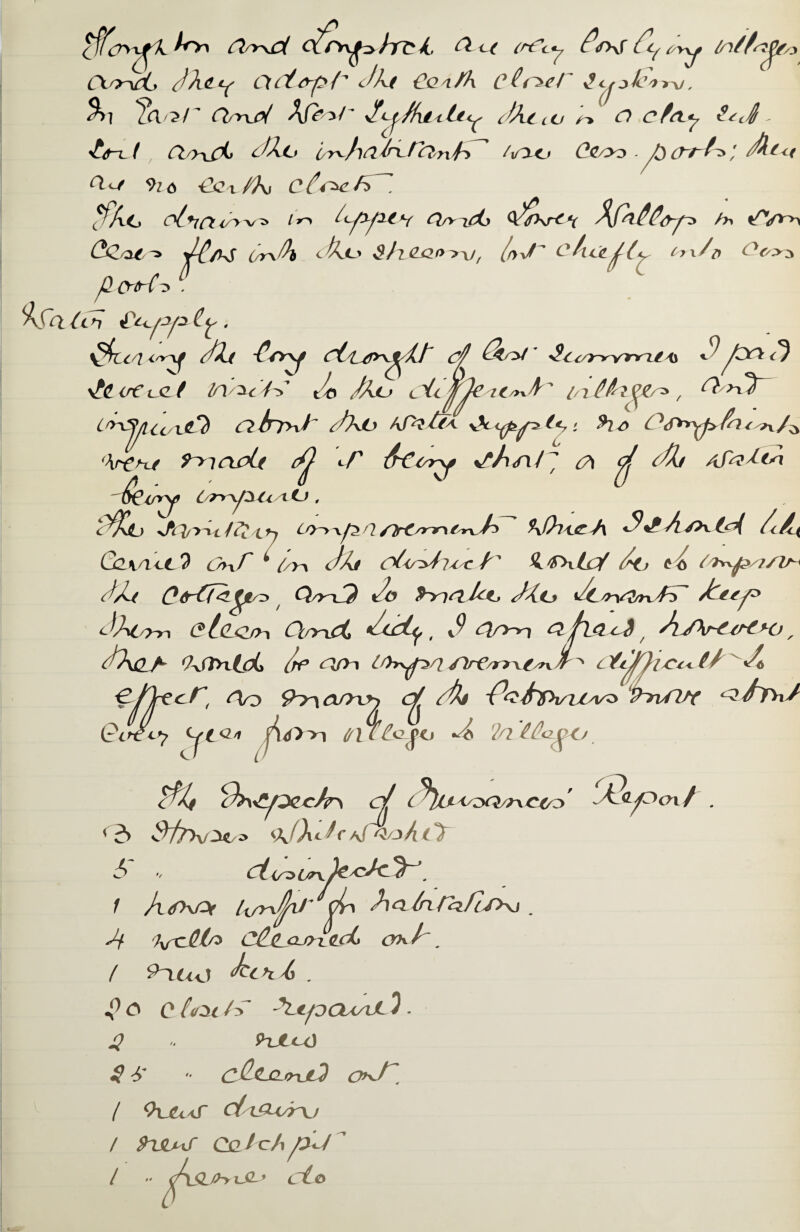 Houghton and Longstock are very long lying villages
and they adopt the earth closet system.
In East and West Tytherley there is a clay sub-
soil and the inhabitants use cess-pools; there
are no earth closets.
The drains in Upper and Lower Wallop in some
cases flow into the stream, but chiefly into cess
pools.
Water Supply.
During the long drought of last summer I paid
several visits to the different villages, and
inquired about the water supply: no complaints
were made of it being short, or of the water
being impure.
The sanitary improvements which I should like
carried out in the district would be to improve
the Cottages, and to make the tenants keep
them clean and tidy, I am afraid, however,
that would be an improvement difficult to
effect, as many of the labourers move about
every year from village to village
The Inspector of Nuisances' Report.
3 Houses whitewashed
5 " disinfected.
1 house unfit for habitation.
4 wells cleaned out.
1 new tank.
20 closets repaired.
2 " new
25 " cleaned out.
1 new drain
1 new catch pit
1 " do